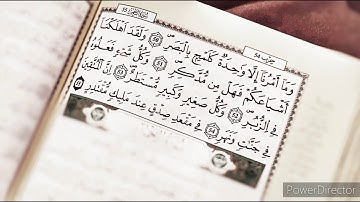 وَمَا أَمْرُنَا إِلَّا وَٰحِدَةٌ كَلَمْحٍ بِالْبَصَرِ ۝٥٠ وَلَقَدْ أَهْلَكْنَا
أَشْيَاعَكُمْ فَهَلْ مِن مُّدَّكِرٍ ۝٥١ وَكُلُّ شَيْءٍ فَعَلُوهُ
فِي الزُّبُرِ ۝٥٢ وَكُلُّ صَغِيرٍ وَكَبِيرٍ مُّسْتَطَرٌ ۝٥٣ إِنَّ الْمُتَّقِينَ
فِي جَنَّٰتٍ وَنَهَرٍ ۝٥٤ فِي مَقْعَدِ صِدْقٍ عِندَ مَلِيكٍ مُّقْتَدِرٍ ۝٥٥
PowerDirector